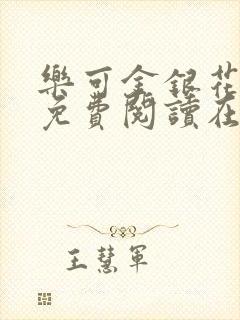 樂可金銀花
免費閱讀在
王慧軍